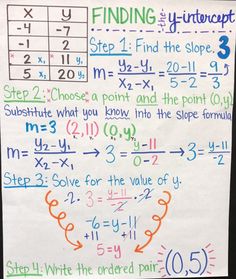 FINDING the y-intercept
X Y
-4 -7
-1 2
2 x₁ 11 y₁
5 x₂ 20 y₂
Step 1: Find the slope. 3
m = y₂-y₁ / x₂-x₁ = 20-11 / 5-2 = 9 / 3
Step 2: *Choose* a point and the point (0,y)
Substitute what you know into the slope formula
m=3 (2,11) (0,y)
m = y₂-y₁ / x₂-x₁ → 3 = y-11 / 0-2 → 3 = y-11 / -2
Step 3: Solve for the value of y.
-2 · 3 = y-11 / -2 · -2
-6 = y-11
+11 +11
5 = y
Step 4: Write the ordered pair. (0,5)